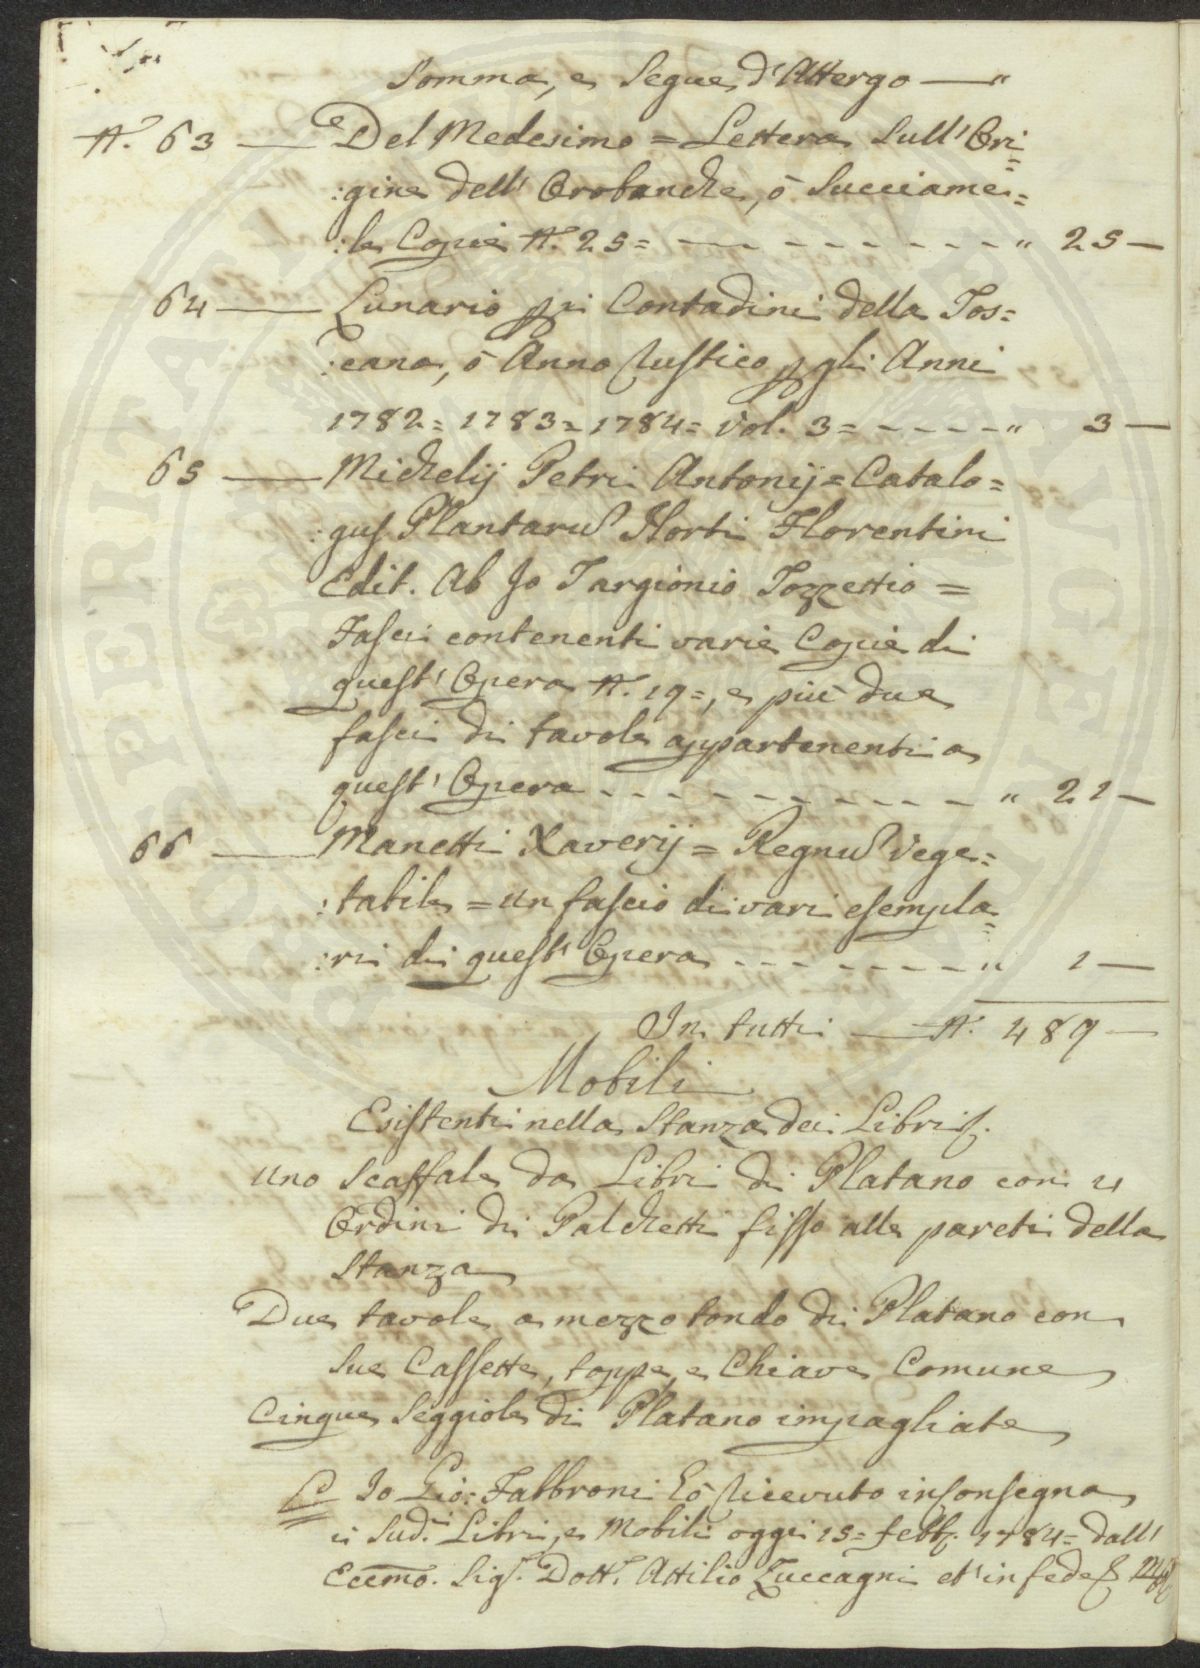 Somma, e Segue d'Attergo — "
N.° 63 — Del Medesimo = Lettera Sull'Ori=
:gine dell'Orobanche, ò Succiame=
:le Copie N. 25 = - - - - - - - " 25 —
64 — Lunario pei Contadini della Tos=
:cana, ò Anno Rustico p gli Anni
1782 = 1783 = 1784 = Vol. 3 = - - - - " 3 —
65 — Michelij Petri Antonij = Catalo=
:gus Plantaru Horti Florentini
Edit. Ab Jo Targionio Tozzettio =
Fasci contenenti varie Copie di
quest'Opera N. 19 =, e più due
fasci di tavole appartenenti a
quest'Opera - - - - - - - - - " 21 —
66 — Manetti Xaverij = Regnu Vege=
:tabile = un fascio di vari esempla=
:ri di quest'Opera - - - - - - - " 1 —
In tutti — N. 489 —
Mobili
Esistenti nella Stanza dei Libri
Uno Scaffale da Libri di Platano con 4
Ordini di Palchetti fisso alle pareti della
Stanza
Due tavole a mezzo tondo di Platano con
Sue Cassette, toppe, e Chiave Comune
Cinque Seggiole di Platano impagliate
Io Gio: Fabbroni hò ricevuto in consegna
i Sud.i Libri, e Mobili oggi 15 = febb. 1784 = dall'
Eccmo. Sig.r Dott.r Attilio Zuccagni et in fede
SPERITATI PAVGEN